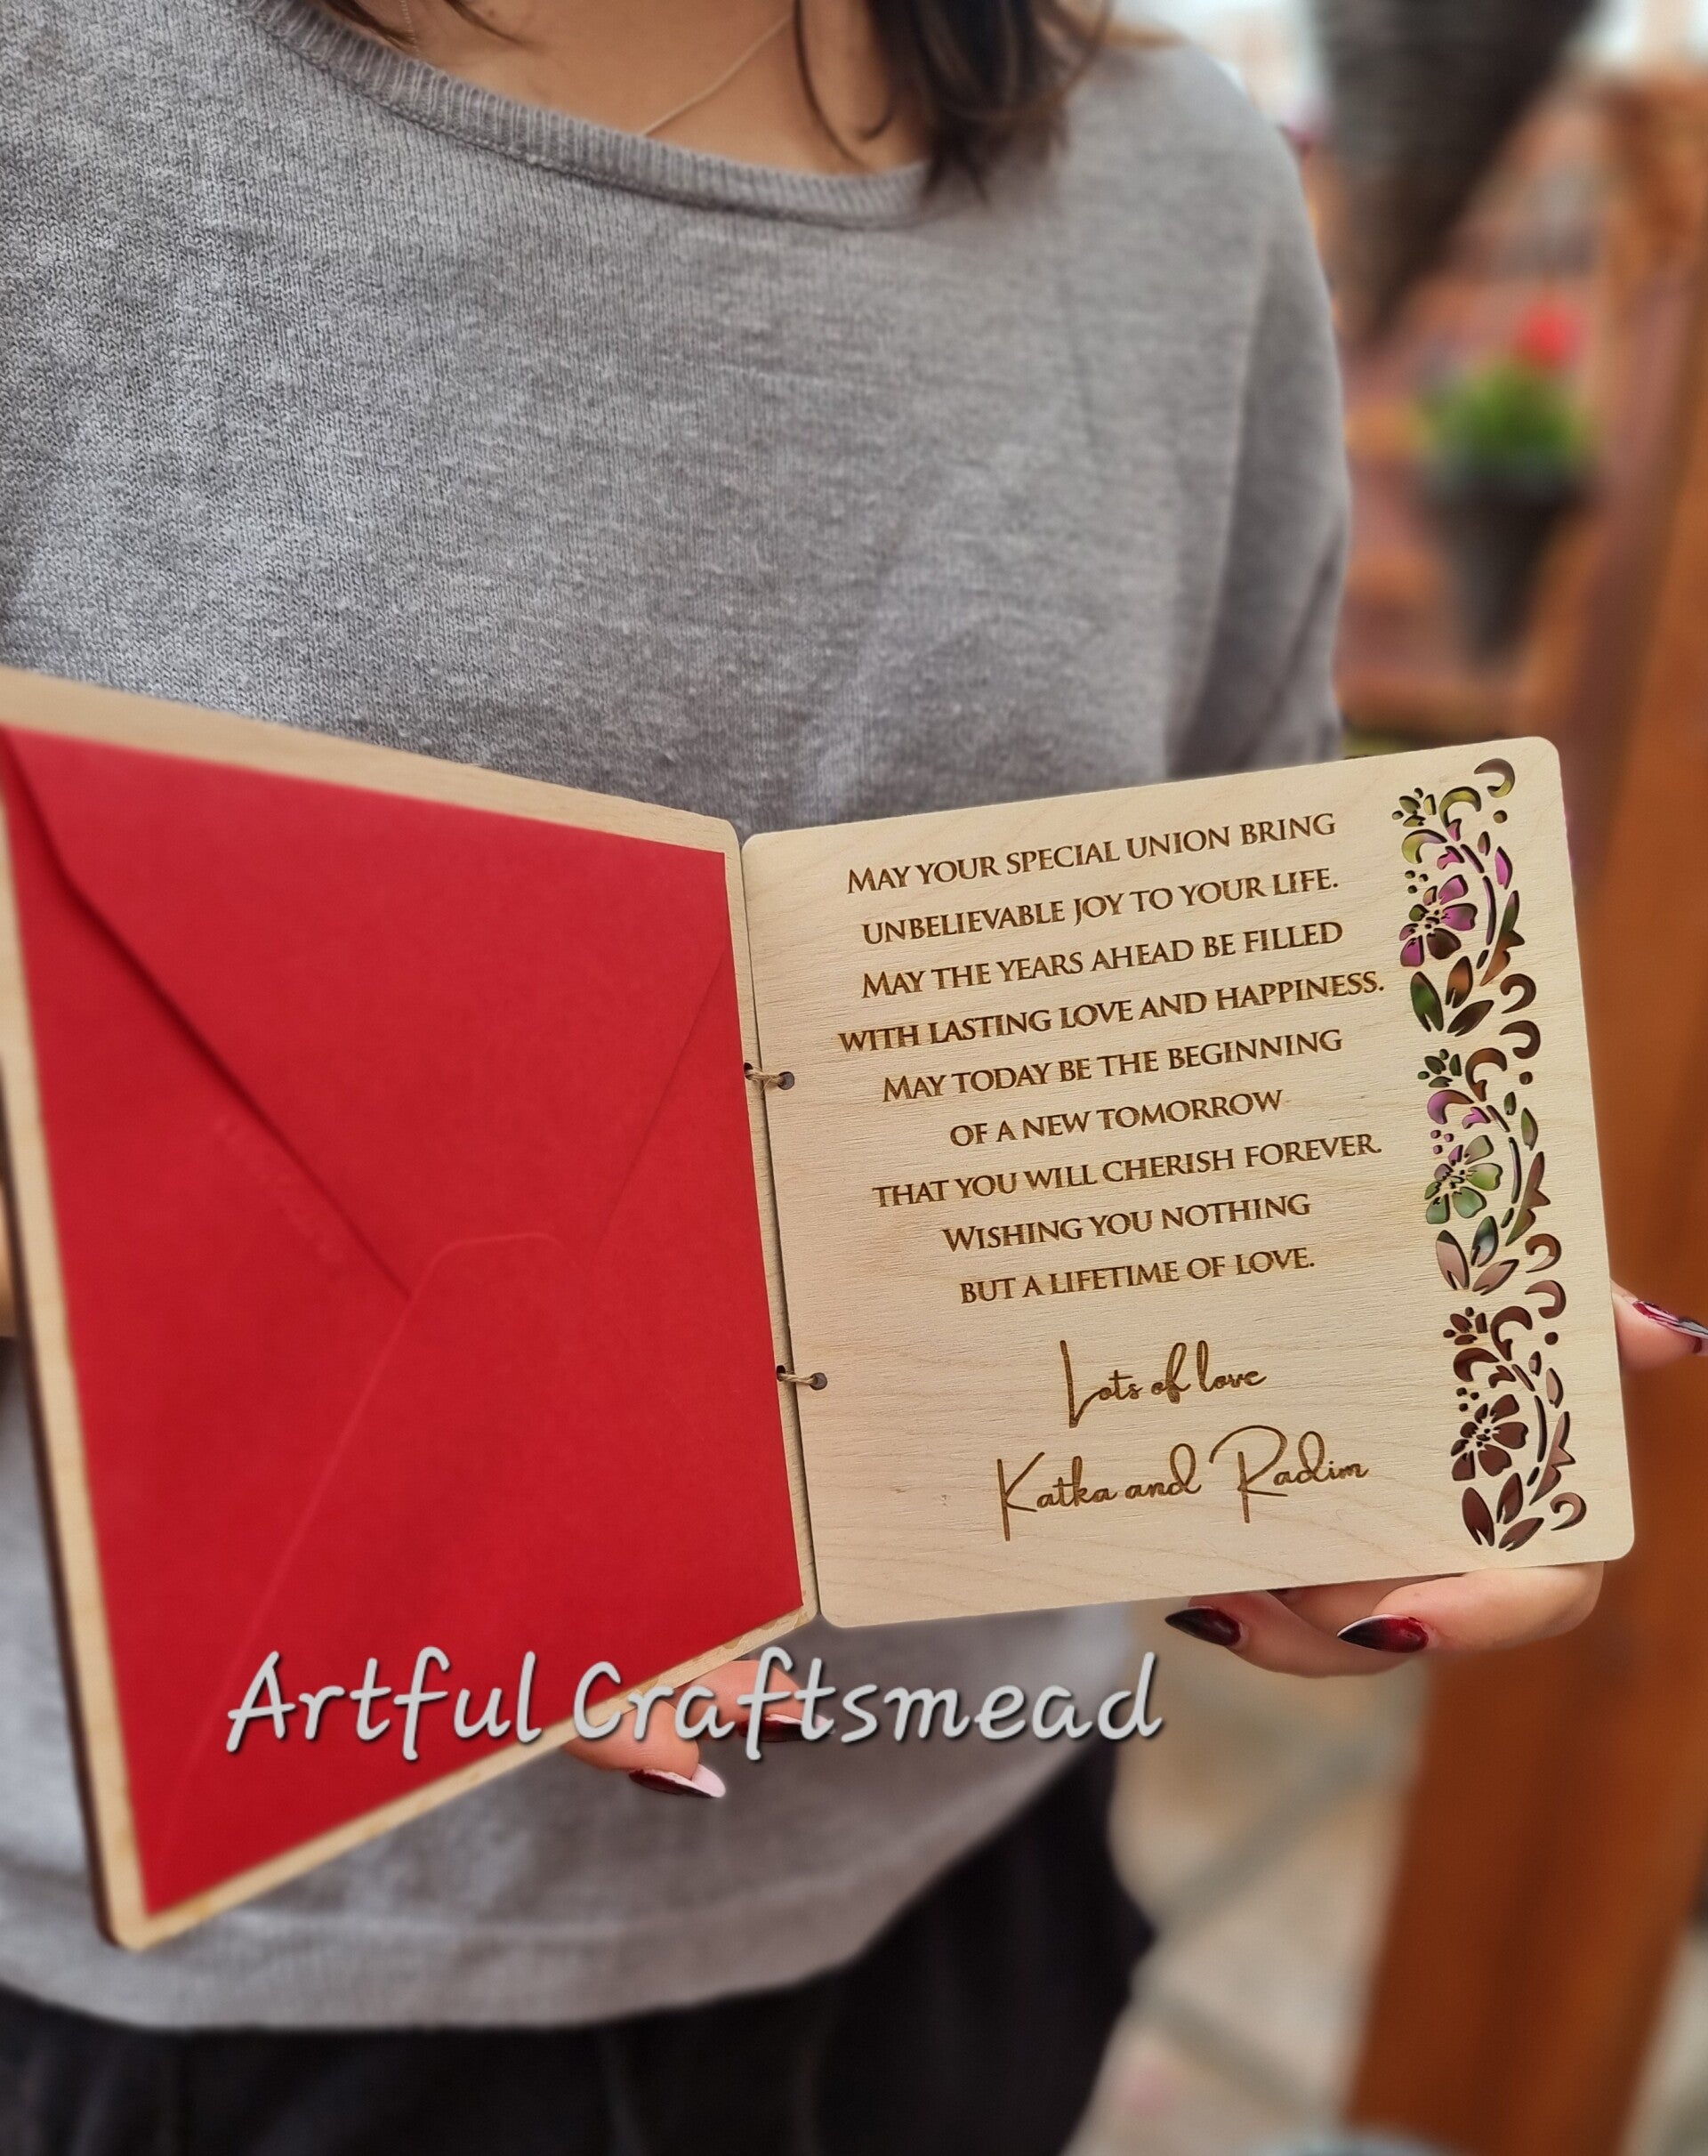 May your special union bring
unbelievable joy to your life.
May the years ahead be filled
with lasting love and happiness.
May today be the beginning
of a new tomorrow
that you will cherish forever.
Wishing you nothing
but a lifetime of love.
Lots of love
Katka and Radim
Artful Craftsmead